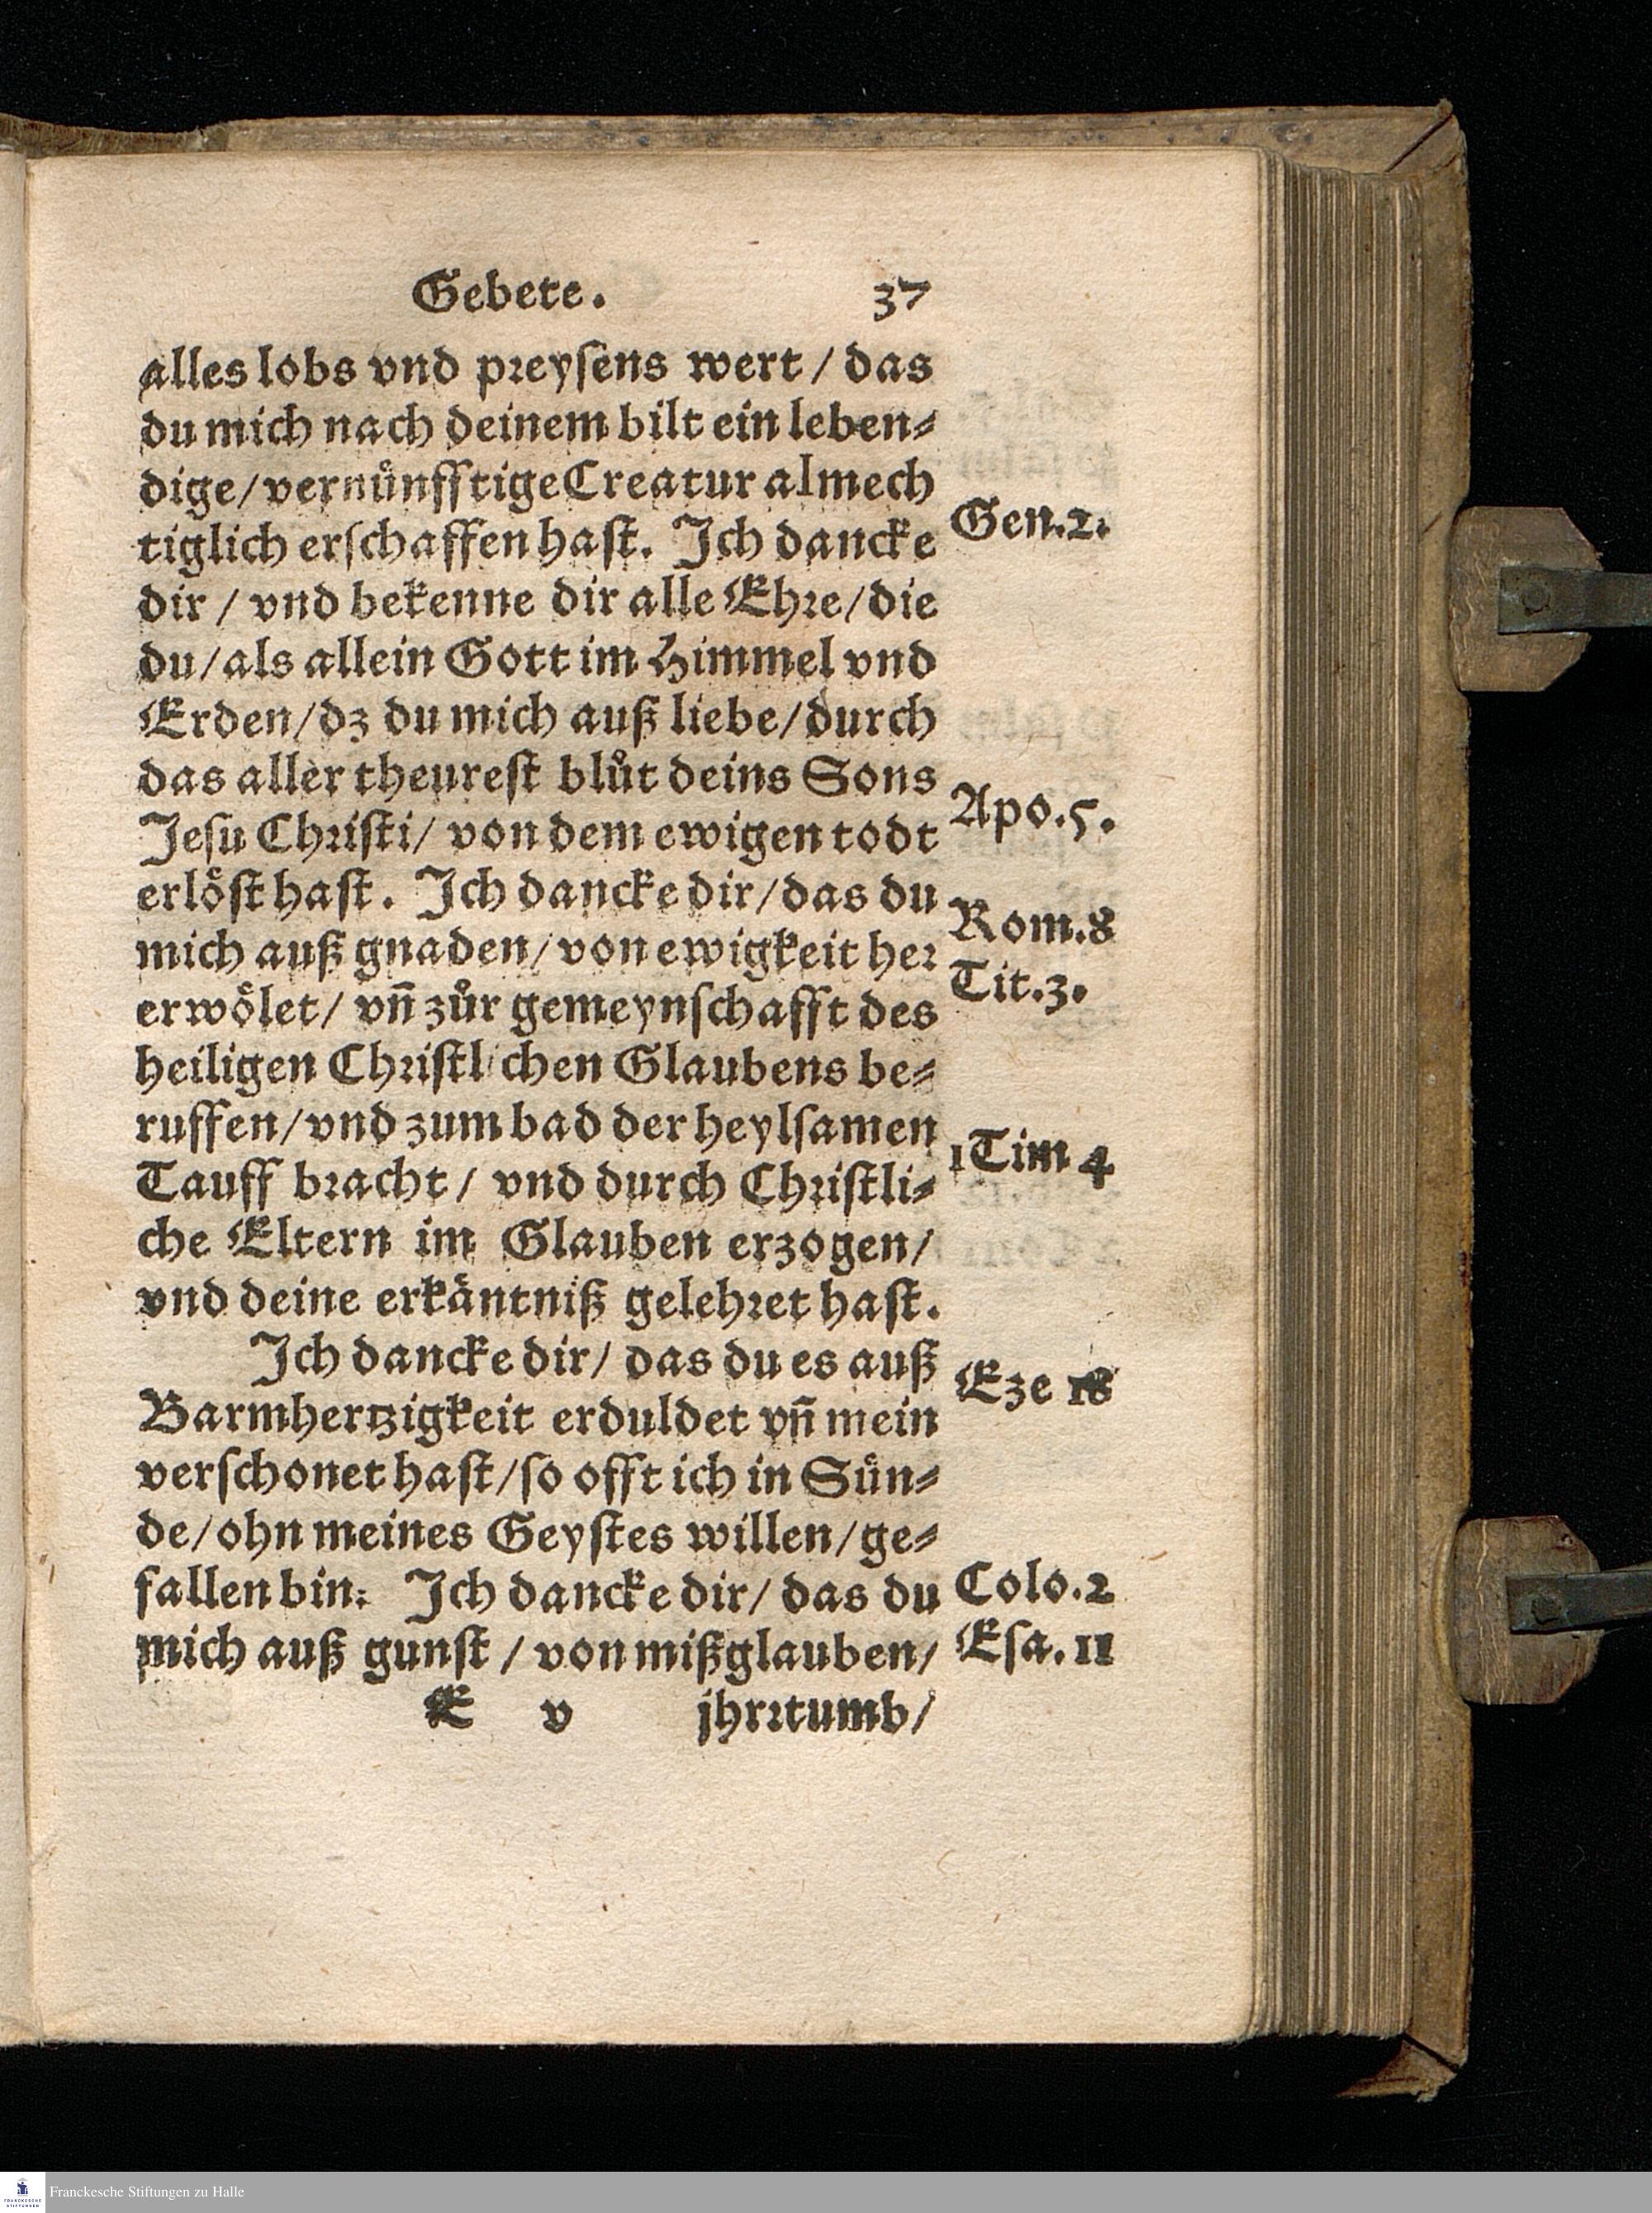 Gebete. 37
alles lobs vnd preyſens wert / das
du mich nach deinem bilt ein leben⸗
dige / vernuͤnfftige Creatur almech
tiglich erſchaffen haſt. Ich dancke
Gen. 2.
dir / vnd bekenne dir alle Ehre / die
du / als allein Gott im Himmel vnd
Erden / dz du mich auß liebe / durch
das aller theureſt bluͦt deins Sons
Apo. 5.
Jeſu Chriſti / von dem ewigen todt
erloͤſt haſt. Ich dancke dir / das du
Rom. 8
mich auß gnaden / von ewigkeit her
Tit. 3.
erwoͤlet / vñ zuͦr gemeynſchafft des
heiligen Chriſtlichen Glaubens be⸗
ruffen / vnd zum bad der heylſamen
1 Tim 4
Tauff bracht / vnd durch Chriſtli⸗
che Eltern im Glauben erzogen /
vnd deine erkaͤntniß gelehret haſt.
Ich dancke dir / das du es auß
Eze 18
Barmhertzigkeit erduldet vñ mein
verſchonet haſt / ſo offt ich in Suͤn⸗
de / ohn meines Geyſtes willen / ge⸗
fallen bin. Ich dancke dir / das du
Colo. 2
mich auß gunſt / von mißglauben /
Eſa. 11
E v jhrrtumb /
FRANCKESCHE STIFTUNGEN
Franckesche Stiftungen zu Halle